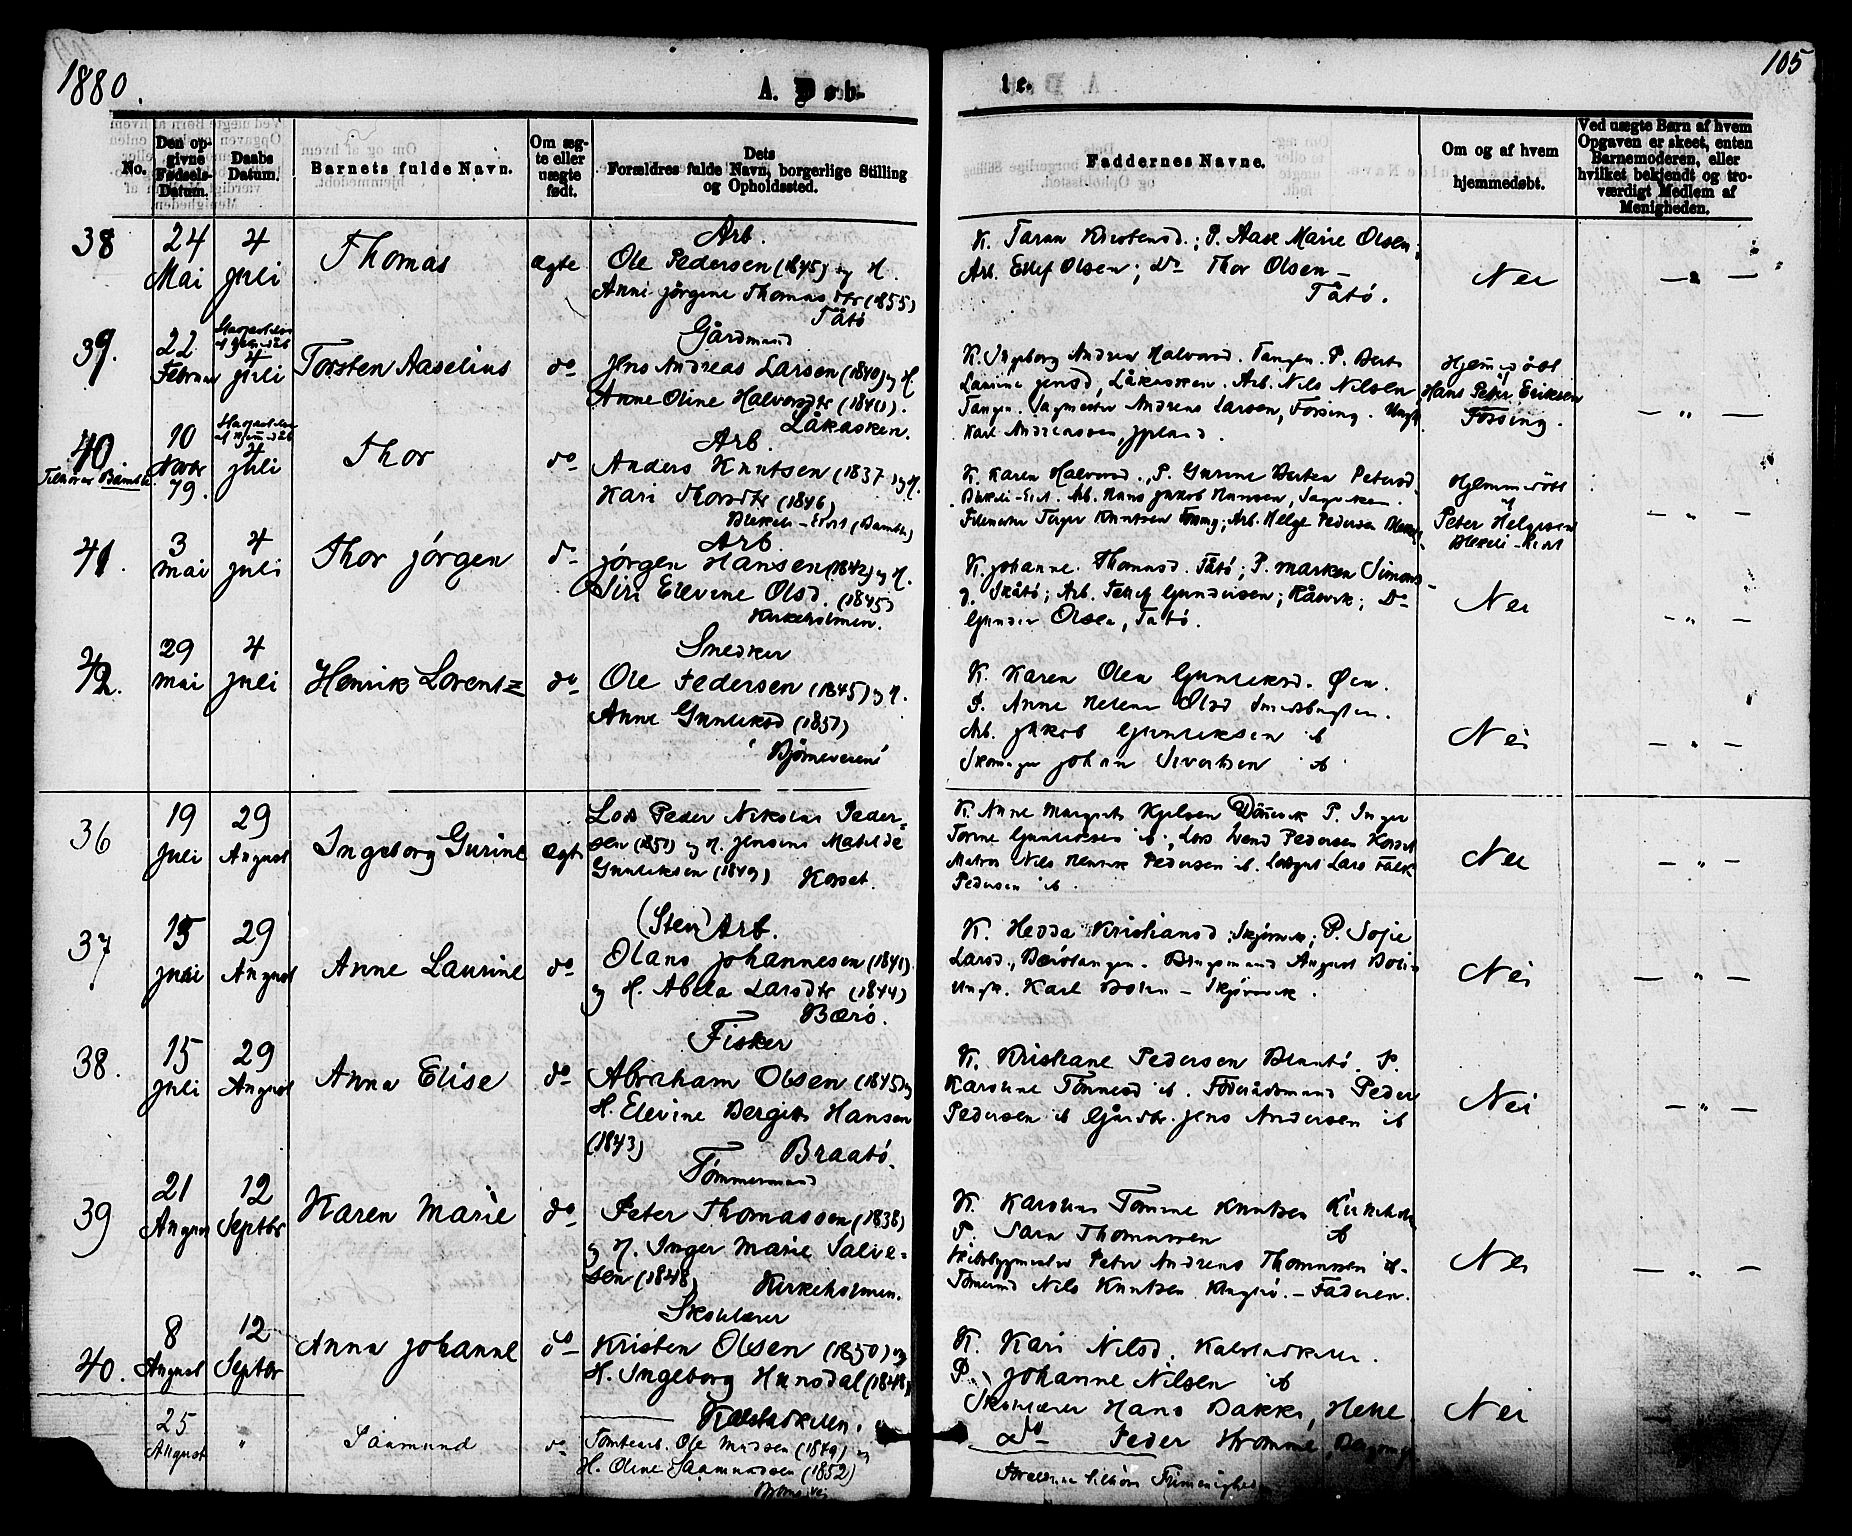 1880.
A. Døb-
te.
105
No.
Den op-
givne
Fødsels-
Datum.
Daabs
Datum.
Barnets fulde Navn.
Om æg-
te eller
uægte
født.
Dets
Forældres fulde Navn, borgerlige Stilling
og Opholdssted.
Faddernes Navne.
Om og af hvem
hjemmedøbt.
Ved uægte Børn af hvem
Opgaven er skeet, enten
Barnemoderen, eller
hvilket bekjendt og tro-
værdigt Medlem af
Menigheden.
38
24
Mai
4
Juli
Thomas
ægte
Arb.
Ole Pedersen (1845) og H.
Anne Jørgine Thomasdtr (1855)
Tåtø
K. Taran Kirstensd.; P. Aase Marie Olsen;
Arb. Ellef Olsen; Do Thor Olsen –
Tåtø.
Nei
— " —
39.
22
Februar
4
Juli
Torsten Aaselius
do
Gårdmand
Jens Andreas Larsen (1840) og H.
Anne Oline Halvorsdtr (1841).
Låkasken.
K. Ingeborg Andrea Halvorsd. Tangen. P. Berte
Laurine Jensd, Låkasken. Arb. Nils Nilsen
Tangen. Sagmester Andreas Larsen, Fossing. Ungk
Karl Andreassen, Jyland.
Hjemmedøbt
af
Hans Peter Eriksen
Fossing.
— " —
40
Tilhører Bamble
10
Novbr
79.
4
Juli
Thor
do
Arb.
Anders Knutsen (1837) og H.
Kari Thorsdtr (1846)
(Bamble)
K. Karen Halvorsd., P. Gurine Berten Petersd.
Arb. Hans Jakob Hansen,
Knutsen Fossing; Arb. Helge Pedersen
Hjemmedøbt
af
Peter Helgesen
— " —
41.
3
Mai
4
Juli
Thor Jørgen
do
Arb.
Jørgen Hansen (1842) og H.
Siri Elevine Olsd. (1845)
Kirkeholmen.
K. Johanne Thomasd. Tåtø; P. Marken Simons-
d. Skåtø; Arb. Tellef Gundersen; Kåsvik; Do
Gunder Olsen, Tåtø.
Nei
— " —
42.
29
Mai
4
Juli
Henrik Lorentz
do
Snedker
Ole Pedersen (1845) og H.
Anne Gunleksd (1857)
K. Karen Olea Gunleksd. Øen.
P. Anne Helene Olsd
Arb. Jakob Gunleksen ib
Johan Sivertsen ib
Nei
— " —
36
19
Juli
29
August
Ingeborg Gurine
ægte
Lods Peder Nikolai Peder-
sen (1850) og H. Jensine Matilde
Gunleksen (1849) Korset.
K. Anne Margrete Kjelsen P. Inger
Torine Gunleksen ib; Lods Svend Pedersen Korset
Matros Nils Henrik Pedersen ib. Lars Falk
Pedersen ib.
Nei
— " —
37
15
Juli
29
August
Anne Laurine
do
(Sten) Arb.
Olans Johannesen (1841)
og H. Abela Larsdtr (1844)
Bærø.
K. Hedda Kristiansd. P. Sofie
Larsd., Bærøtangen. August
Ungk. Karl
Nei
— " —
38.
15
Juli
29
August
Anna Elise
do
Fisker
Abraham Olsen (1845) og
H. Elevine Bergitte Hansen
(1843) Braatø.
K. Kristiane Pedersen Braatø. P.
Karoline Tønnesd ib. Føderådsmand Peder
Pedersen ib Gårdbr. Jens Andersen ib
Nei
— " —
39
21
August
12
Septbr
Karen Marie
do
Tømmermand
Peter Thomassen (1838)
og H. Inger Marie Salve-
sen (1848) Kirkeholmen.
K. Karoline Tomine Knutsen Kirkeholm
P. Sara Thomassen ib
Skibsbygmester Peter Andreas Thomassen ib.
Nils Knutsen – Faderen.
Nei
— " —
40.
8
August
12
Septbr
Anna Johanne
do
Skolelærer
Kristen Olsen (1850) og
H. Ingeborg Hunsdal (1848)
Kalstadkilen.
K. Kari Nilsd. Kalstadkilen.
P. Johanne Nilsen ib
Skolelærer Hans Bakke, Helle
Do Peder Hromme,
Nei
25
August
"
Saamund
do
Tomtearb. Ole Madsen (1849) og
H. Oline Saamundsen (1852)
Forældrene tilhøre Frimenigheden